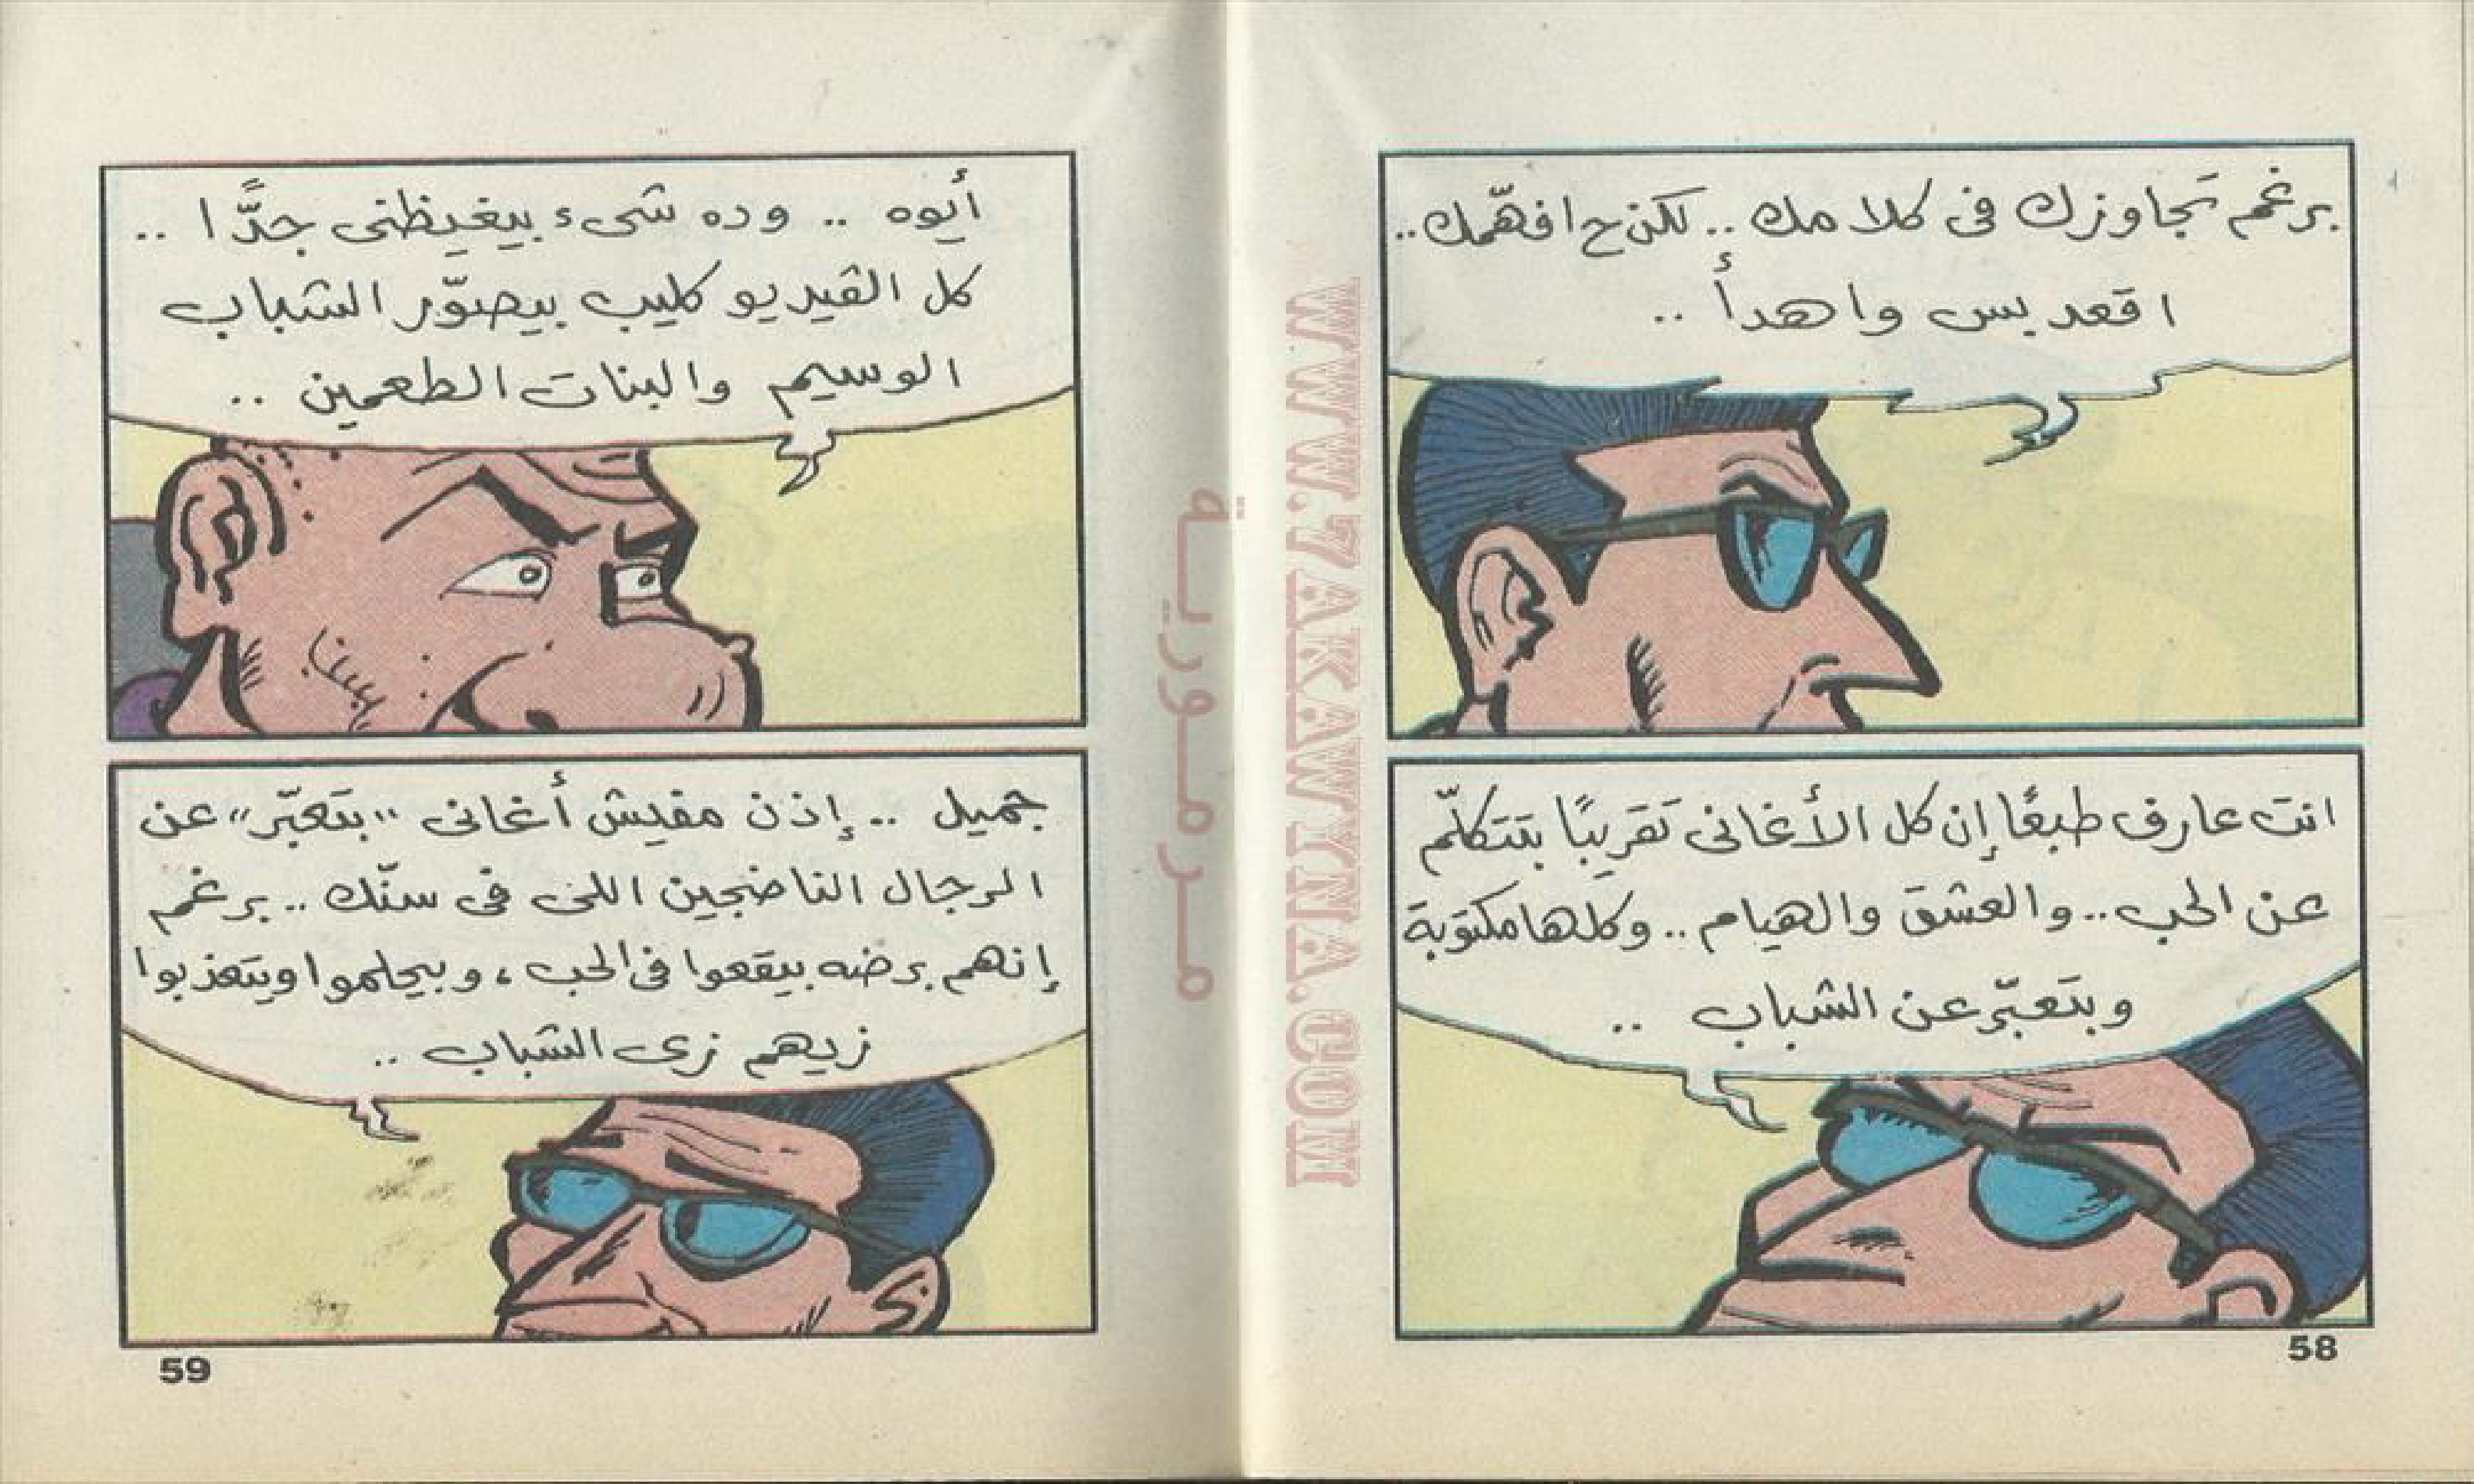 برغم تجاوزك فى كلامك .. لكن ح افهّمك ..
اقعد بس واهدأ ..
انت عارف طبعًا إن كل الأغانى تقريبًا بتتكلّم
عن الحب .. والعشق والهيام .. وكلها مكتوبة
وبتعبّر عن الشباب ..
58
أيوه .. وده شىء بيغيظنى جدًّا ..
كل الڤيديو كليب بيصوّر الشباب
الوسيم والبنات الطعمين ..
جميل .. إذن مفيش أغانى "بتعبّر" عن
الرجال الناضجين اللى فى سنّك .. برغم
إنهم برضه بيقعوا فى الحب، وبيحلموا ويتعذبوا
زيهم زى الشباب ..
59
WWW.7AKAWYNA.COM
مرمورية